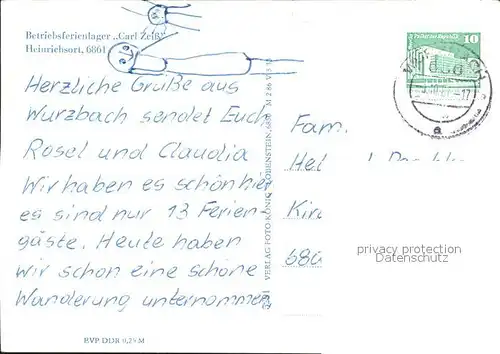 Betriebsferienlager „Carl Zeiß"
Heinrichsort, 6861
Herzliche Grüße aus
Wurzbach sendet Euch
Rosel und Claudia
Wir haben es schön hier
es sind nur 13 Ferien-
gäste. Heute haben
wir schon eine schöne
Wanderung unternommen
EVP DDR 0,25 M
VERLAG FOTO-KÖNIG LOBENSTEIN, 6850
10
Fam.
Hel
Kirc
680
privacy protection
Datenschutz